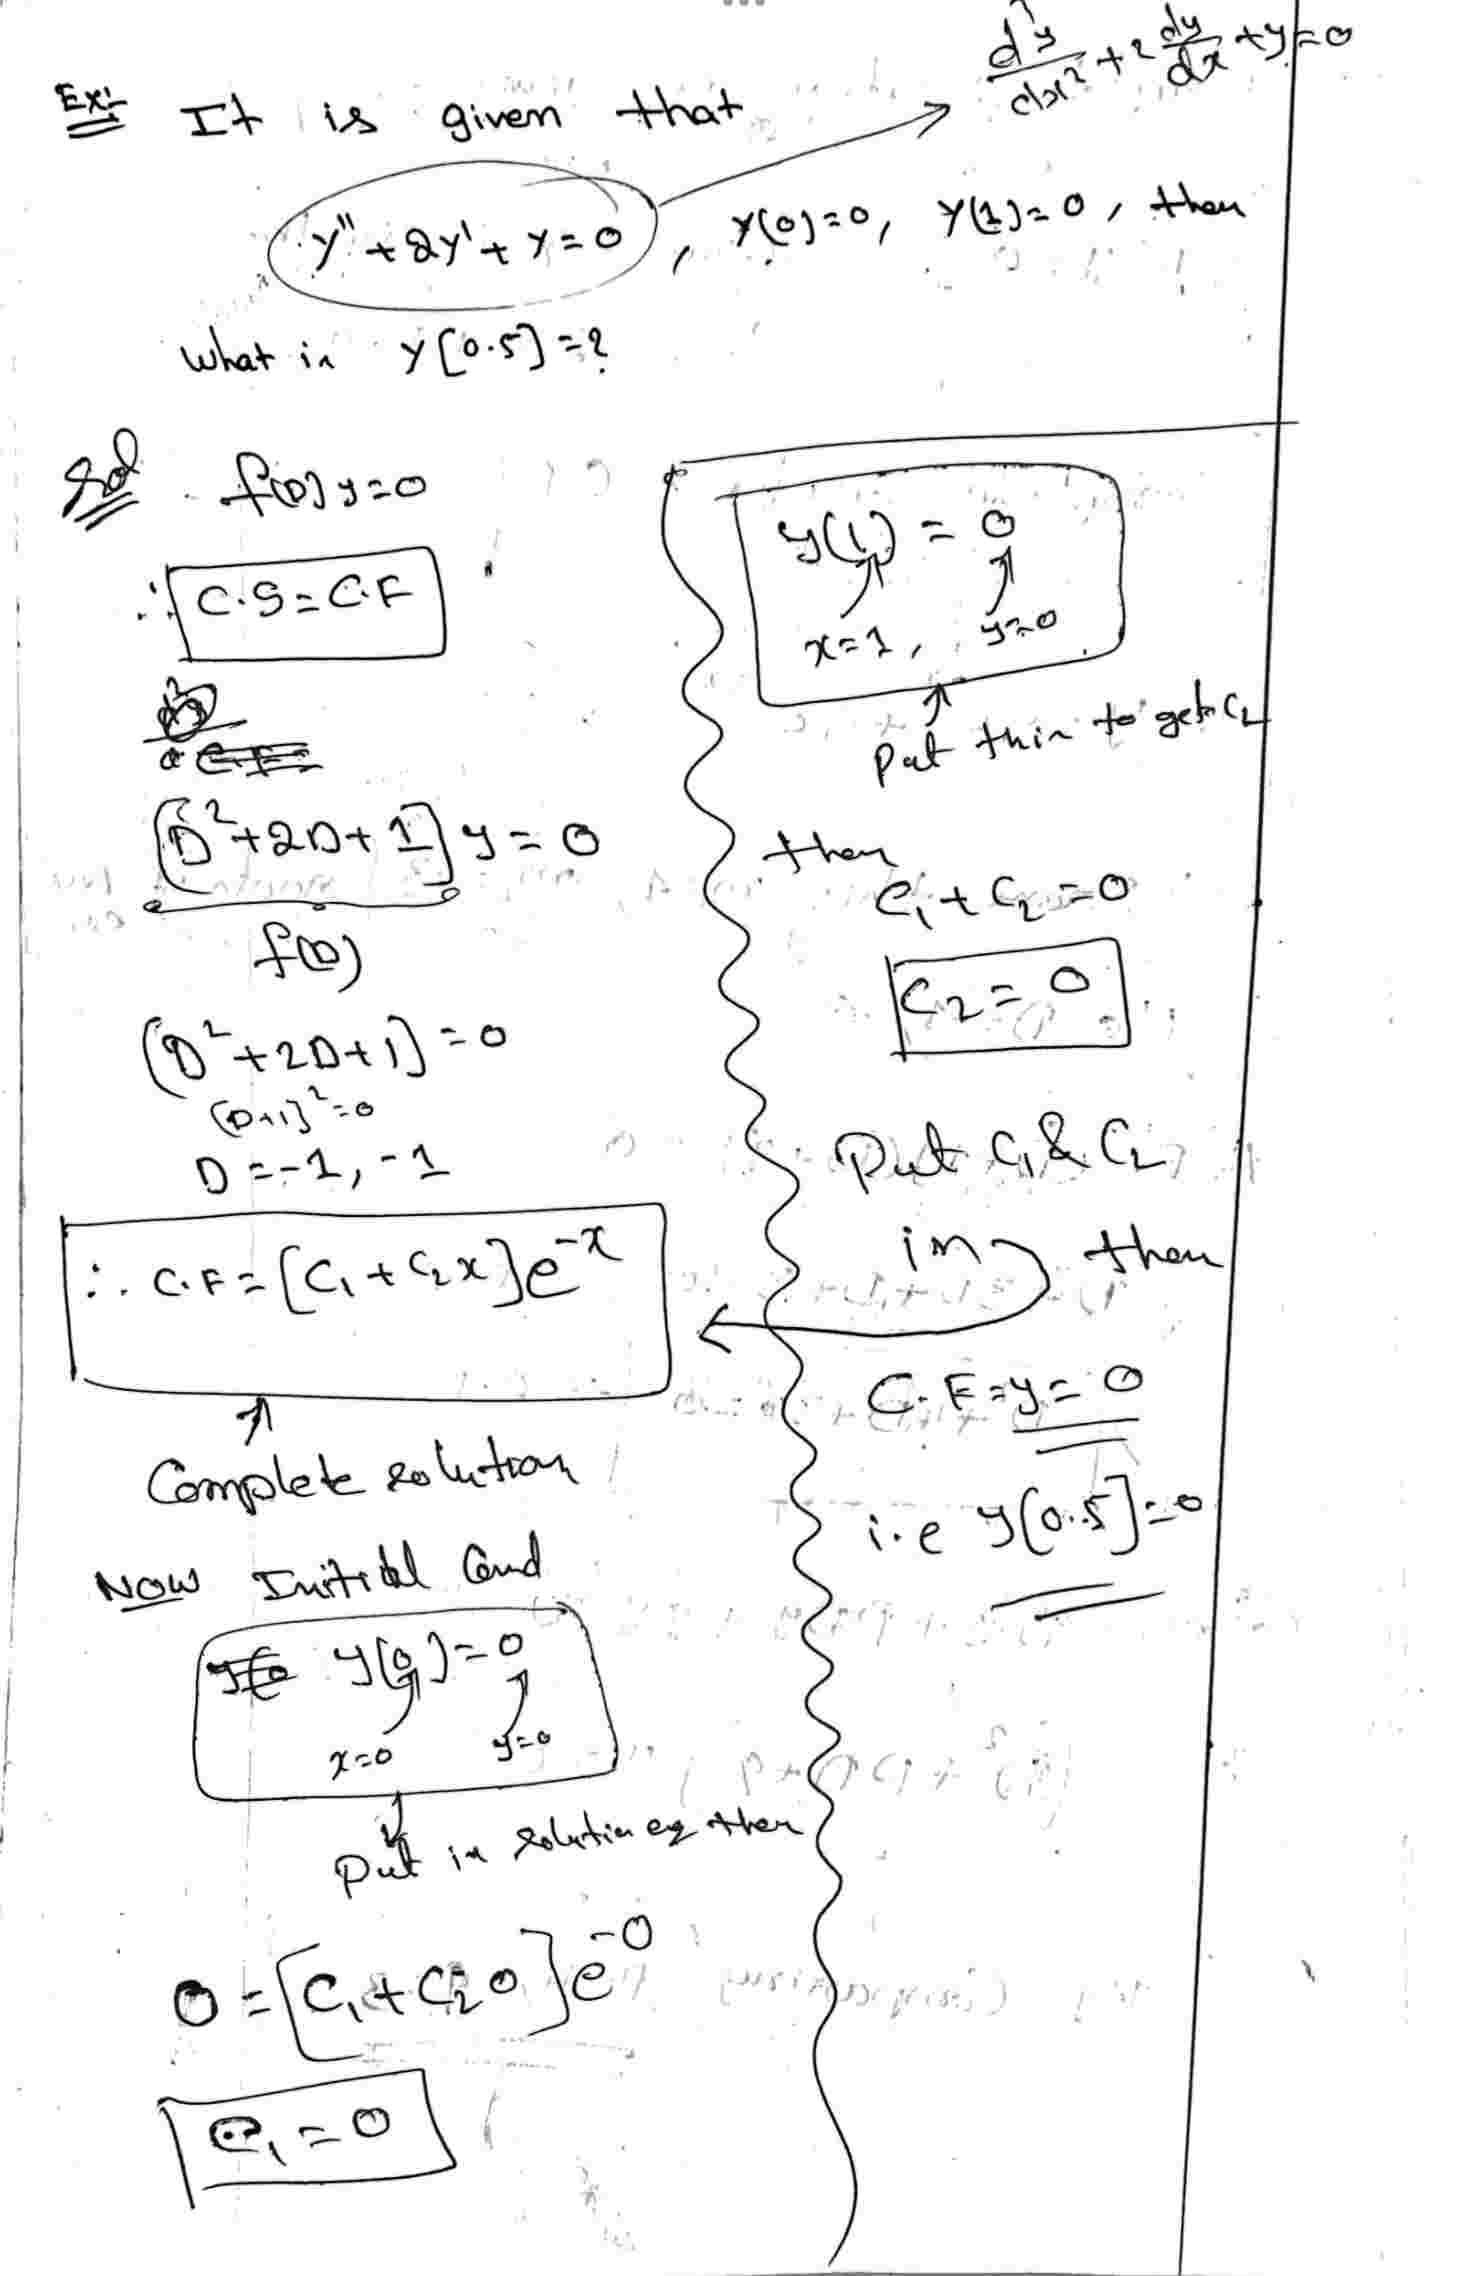 d²y/dx² + 2 dy/dx + y = 0
Ex:- It is given that
y'' + 2y' + y = 0, y(0) = 0, y(1) = 0, then
what is y(0.5) = ?
Sol f(D) y = 0
∴ C.S = C.F
[D² + 2D + 1] y = 0
f(D)
(D² + 2D + 1) = 0
(D+1)² = 0
D = -1, -1
∴ C.F = [C₁ + C₂x] e^-x
Complete solution
Now Initial Cond
y(0) = 0
x=0 y=0
Put in solution eq then
0 = [C₁ + C₂ 0] e^-0
C₁ = 0
y(1) = 0
x = 1, y=0
Put this to get C₂
then
C₁ + C₂ = 0
C₂ = 0
Put C₁ & C₂
in then
C.F = y = 0
i.e y(0.5) = 0